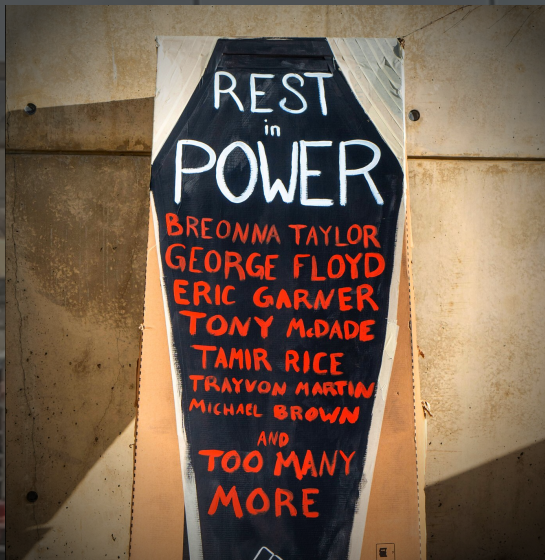 REST
in
POWER
BREONNA TAYLOR
GEORGE FLOYD
ERIC GARNER
TONY McDADE
TAMIR RICE
TRAYVON MARTIN
MICHAEL BROWN
AND
TOO MANY
MORE